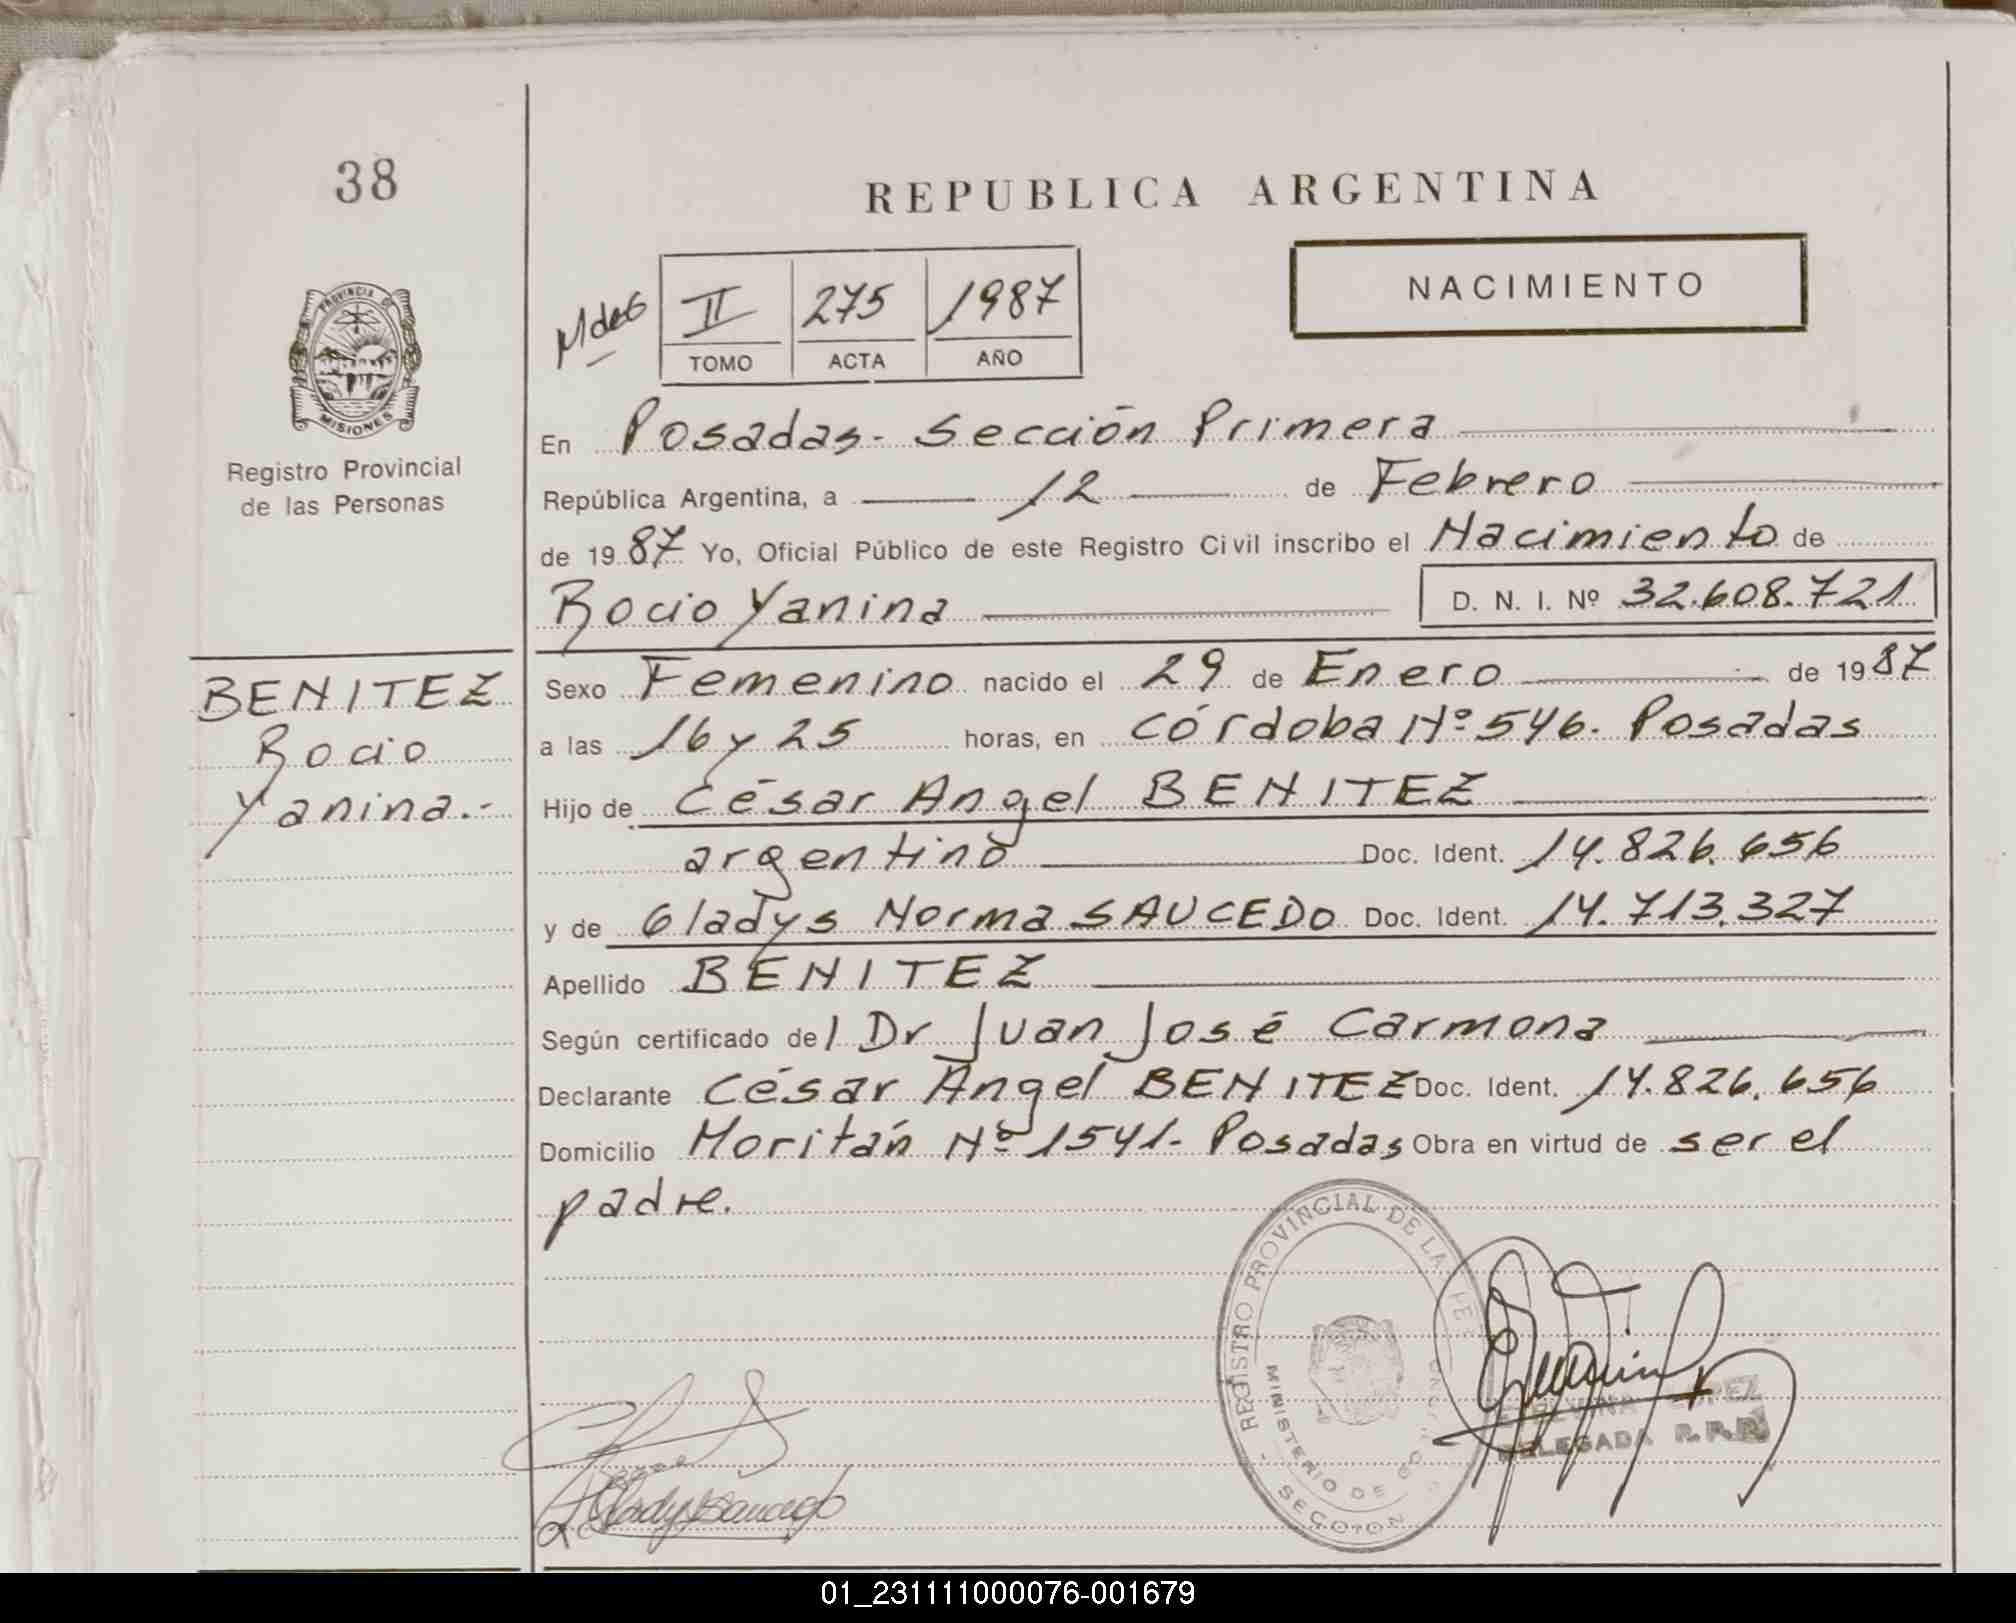 38
REPUBLICA ARGENTINA
NACIMIENTO
II 275 1987
TOMO ACTA AÑO
PROVINCIA DE
MISIONES
Registro Provincial
de las Personas
En Posadas- Sección Primera
República Argentina, a 12 de Febrero
de 1987 Yo, Oficial Público de este Registro Civil inscribo el Nacimiento de
Rocio Yanina D. N. I. Nº 32.608.721
BENITEZ
Rocio
Yanina.-
Sexo Femenino nacido el 29 de Enero de 1987
a las 16 y 25 horas, en Córdoba Nº 546. Posadas
Hijo de César Angel BENITEZ
argentino Doc. Ident. 14.826.656
y de Gladys Norma SAUCEDO Doc. Ident. 14.713.327
Apellido BENITEZ
Según certificado del Dr Juan José Carmona
Declarante César Angel BENITEZ Doc. Ident. 14.826.656
Domicilio Moritán Nº 1541- Posadas Obra en virtud de ser el
padre.
REGISTRO PROVINCIAL DE LA
MINISTERIO DE
SECCION
DELEGADA R.P.P.
01_231111000076-001679